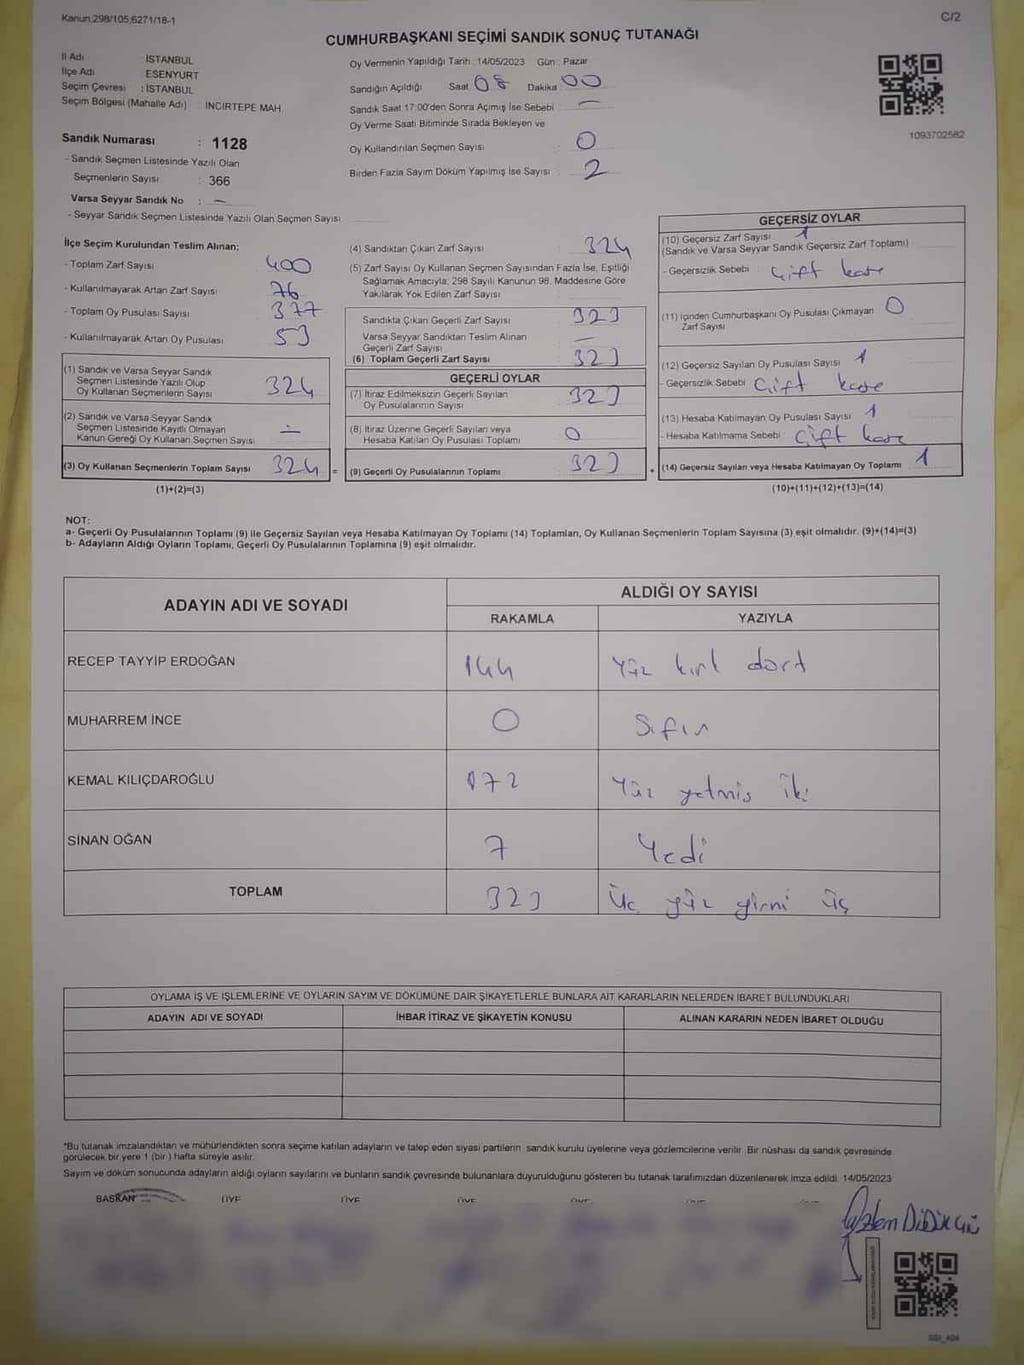 Kanun,298/105;6271/18-1
C/2
CUMHURBAŞKANI SEÇİMİ SANDIK SONUÇ TUTANAĞI
İl Adı İSTANBUL
İlçe Adı ESENYURT
Seçim Çevresi : İSTANBUL
Seçim Bölgesi (Mahalle Adı) : İNCİRTEPE MAH.
Sandık Numarası : 1128
- Sandık Seçmen Listesinde Yazılı Olan
Seçmenlerin Sayısı : 366
Varsa Seyyar Sandık No : –
- Seyyar Sandık Seçmen Listesinde Yazılı Olan Seçmen Sayısı
Oy Vermenin Yapıldığı Tarih : 14/05/2023 Gün : Pazar
Sandığın Açıldığı Saat 08 Dakika 00
Sandık Saat 17:00'den Sonra Açımış İse Sebebi –
Oy Verme Saati Bitiminde Sırada Bekleyen ve
Oy Kullandırılan Seçmen Sayısı : 0
Birden Fazla Sayım Döküm Yapılmış İse Sayısı : 2
1093702582
İlçe Seçim Kurulundan Teslim Alınan;
- Toplam Zarf Sayısı 400
- Kullanılmayarak Artan Zarf Sayısı 76
- Toplam Oy Pusulası Sayısı 377
- Kullanılmayarak Artan Oy Pusulası 53
(1) Sandık ve Varsa Seyyar Sandık
Seçmen Listesinde Yazılı Olup
Oy Kullanan Seçmenlerin Sayısı 324
(2) Sandık ve Varsa Seyyar Sandık
Seçmen Listesinde Kayıtlı Olmayan
Kanun Gereği Oy Kullanan Seçmen Sayısı –
(3) Oy Kullanan Seçmenlerin Toplam Sayısı 324 =
(1)+(2)=(3)
(4) Sandıktan Çıkan Zarf Sayısı 324
(5) Zarf Sayısı Oy Kullanan Seçmen Sayısından Fazla İse, Eşitliği
Sağlamak Amacıyla; 298 Sayılı Kanunun 98. Maddesine Göre
Yakılarak Yok Edilen Zarf Sayısı
Sandıkta Çıkan Geçerli Zarf Sayısı 323
Varsa Seyyar Sandıktan Teslim Alınan
Geçerli Zarf Sayısı –
(6) Toplam Geçerli Zarf Sayısı 323
GEÇERLİ OYLAR
(7) İtiraz Edilmeksizin Geçerli Sayılan
Oy Pusulalarının Sayısı 323
(8) İtiraz Üzerine Geçerli Sayılan veya
Hesaba Katılan Oy Pusulası Toplamı 0
(9) Geçerli Oy Pusulalarının Toplamı 323 +
GEÇERSİZ OYLAR
(10) Geçersiz Zarf Sayısı 1
(Sandık ve Varsa Seyyar Sandık Geçersiz Zarf Toplamı)
- Geçersizlik Sebebi : çift kaşe
(11) İçinden Cumhurbaşkanı Oy Pusulası Çıkmayan 0
Zarf Sayısı
(12) Geçersiz Sayılan Oy Pusulası Sayısı 1
- Geçersizlik Sebebi Çift kaşe
(13) Hesaba Katılmayan Oy Pusulası Sayısı 1
- Hesaba Katılmama Sebebi : çift kaşe
(14) Geçersiz Sayılan veya Hesaba Katılmayan Oy Toplamı 1
(10)+(11)+(12)+(13)=(14)
NOT:
a- Geçerli Oy Pusulalarının Toplamı (9) ile Geçersiz Sayılan veya Hesaba Katılmayan Oy Toplamı (14) Toplamları, Oy Kullanan Seçmenlerin Toplam Sayısına (3) eşit olmalıdır. (9)+(14)=(3)
b- Adayların Aldığı Oyların Toplamı, Geçerli Oy Pusulalarının Toplamına (9) eşit olmalıdır.
ADAYIN ADI VE SOYADI
ALDIĞI OY SAYISI
RAKAMLA YAZIYLA
RECEP TAYYİP ERDOĞAN 144 Yüz kırk dört
MUHARREM İNCE 0 Sıfır
KEMAL KILIÇDAROĞLU 172 Yüz yetmiş iki
SİNAN OĞAN 7 Yedi
TOPLAM 323 Üç yüz yirmi üç
OYLAMA İŞ VE İŞLEMLERİNE VE OYLARIN SAYIM VE DÖKÜMÜNE DAİR ŞİKAYETLERLE BUNLARA AİT KARARLARIN NELERDEN İBARET BULUNDUKLARI
ADAYIN ADI VE SOYADI İHBAR İTİRAZ VE ŞİKAYETİN KONUSU ALINAN KARARIN NEDEN İBARET OLDUĞU
*Bu tutanak imzalandıktan ve mühürlendikten sonra seçime katılan adayların ve talep eden siyasi partilerin sandık kurulu üyelerine veya gözlemcilerine verilir. Bir nüshası da sandık çevresinde
görülecek bir yere 1 (bir) hafta süreyle asılır.
Sayım ve döküm sonucunda adayların aldığı oyların sayılarını ve bunların sandık çevresinde bulunanlara duyurulduğunu gösteren bu tutanak tarafımızdan düzenlenerek imza edildi. 14/05/2023
BAŞKAN ÜYE ÜYE ÜYE ÜYE ÜYE